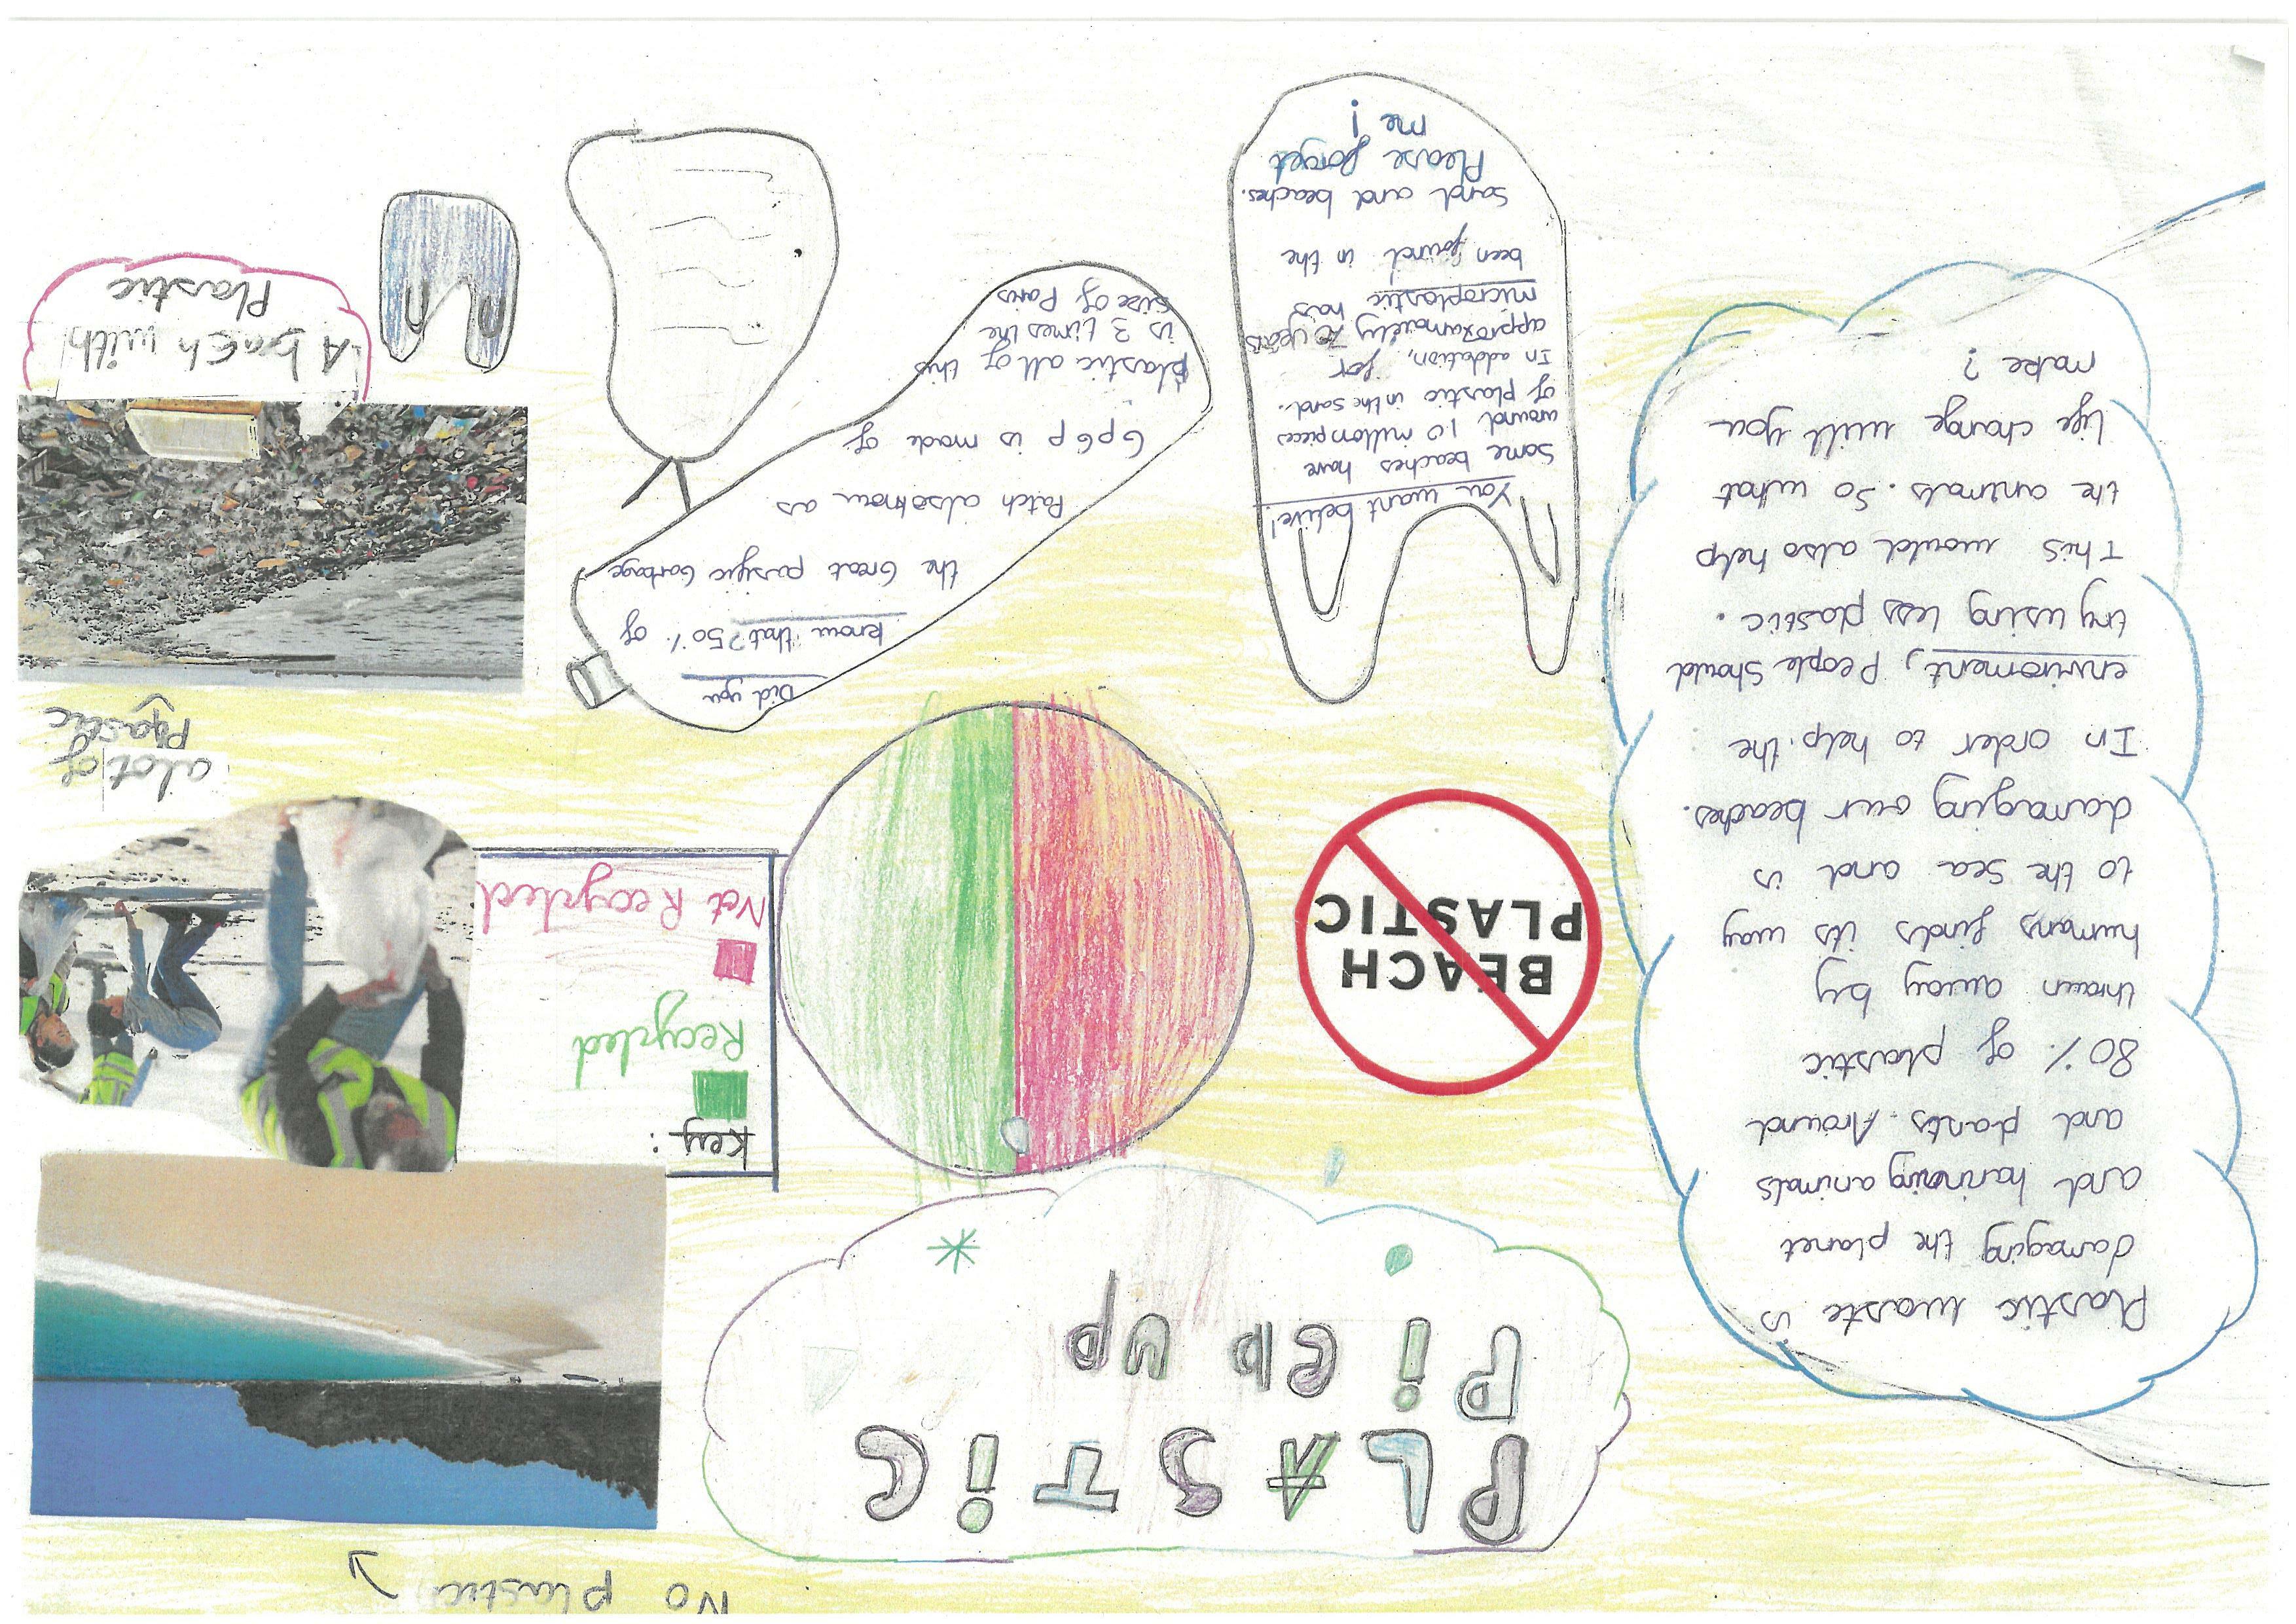 No plastic
PLASTiC
Pi ed up
Plastic waste is
damaging the planet
and harming animals
and plants. Around
80% of plastic
thrown away by
humans finds its way
to the sea and is
damaging our beaches.
In order to help the
enviroment, People should
try using less plastic.
This would also help
the animals. So what
life change will you
make?
BEACH
PLASTIC
Key:
Recycled
Not Recycled
a lot of
Plastic
You want belive!
Some beaches have
around 10 millon pieces
of plastic in the sand.
In addation, for
approxamately 70 years
microplastic has
been found in the
sand and beaches.
Please forget
me!
Did you
know that? 50% of
the Great pasific Garbage
Patch also know as
GPGP is made of
plastic all of this
is 3 times the
size of Paris
A bach with
Plastic